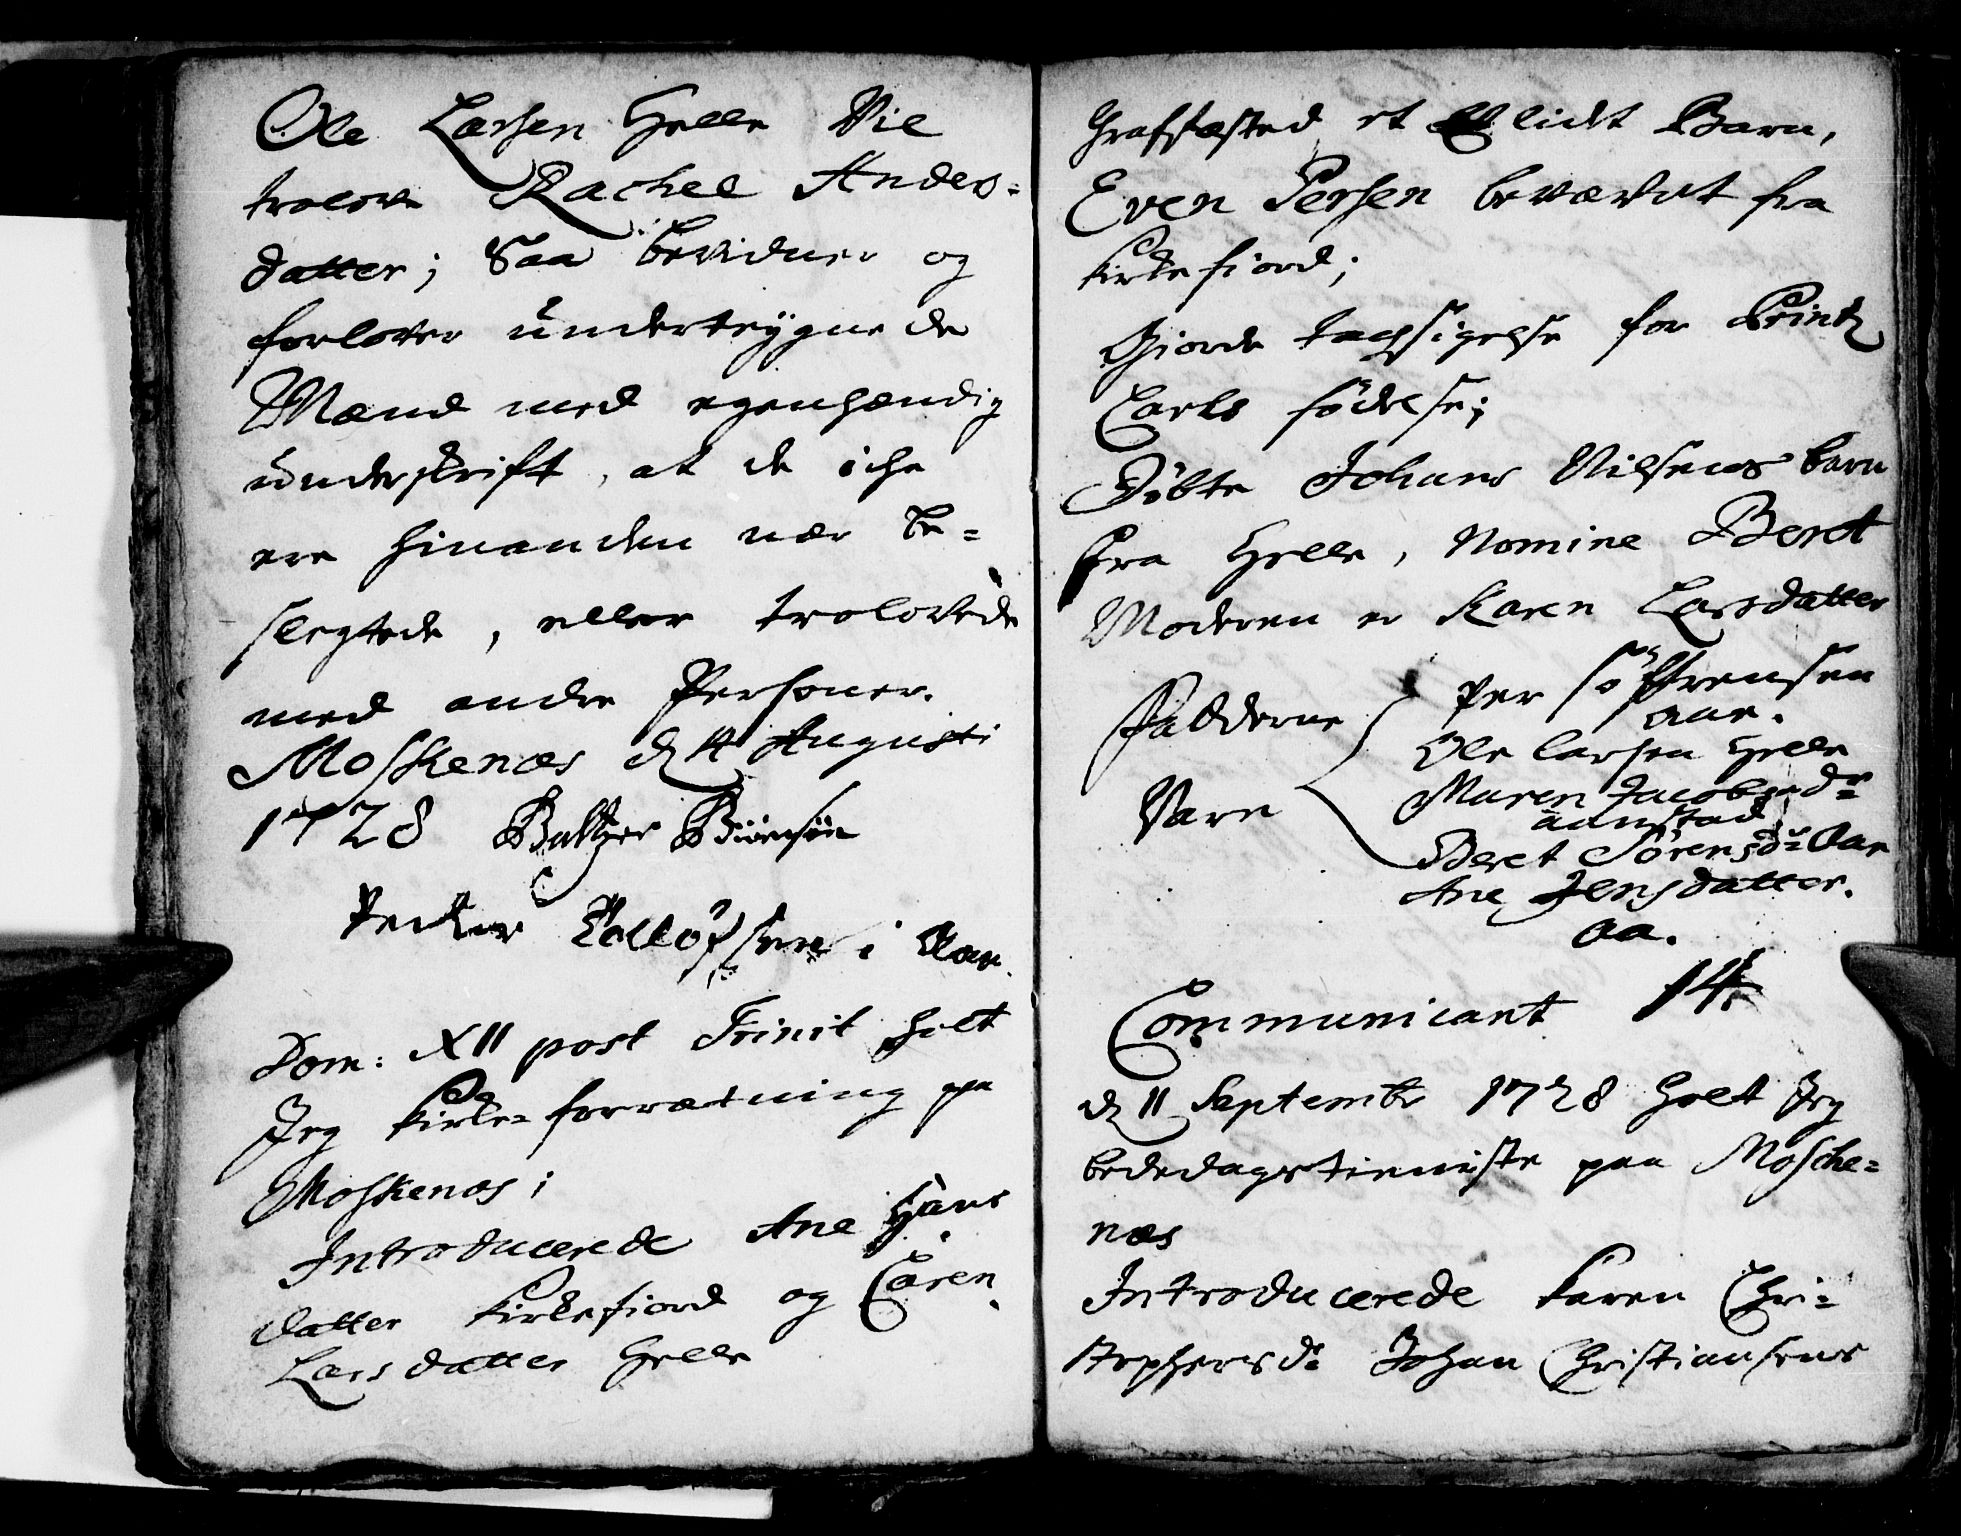 Ole Larsen Helle Vil
trolove Rachel Anders=
datter; Saa bevidner og
forlover underteygnede
Mænd med egenhændig
underskrift, at de iche
ere hinanden nær be=
slegtede, eller trolovede
med andre Personer.
Moskenæs d 4 Augusti
1728 Baltzer Biörnsön
Petter Tollöfsen i Aae.
Dom: XII post Trinit holt
Jeg Kirke=forrætning pa
Moskenæs;
Introducerede Ane Hans
datter Kirkefiord og Caren
Larsdatter Helle
Grafffæsted et lidet Barn,
Even Persen beværdet fra
Kirkefiord;
Giorde tachsigelse for Printz
Carls födelse;
Döbte Johans Nilsens barn
fra Helle, Nomine Beret
Moderen er Karen Larsdatter
Fadderne
Vare
Per Söffrensen
Aae.
Ole Larsen Helle
Maren Jacobsdr
Aunstad
Beret Sörensdr Aae
Ane Jensdatter.
Aa.
Communicant 14
d 11 Septembr 1728 holt Jeg
bededagstieniste paa Mosche=
næs
Introducerede Karen Chri=
stophersdr Johan Christiansens